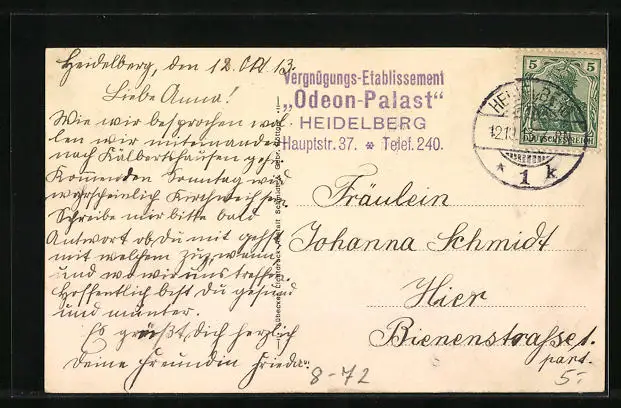 Heidelberg, den 12. Okt 13.
Liebe Anna!
Wie wir besprochen wol-
len wir untereinander
nach Kälbertshausen geh.
Kommenden Sonntag wird
wahrscheinlich Kirchweih sein.
Schreibe mir bitte bald
Antwort ob Du mit gehst
mit welchem Zug, wann
und wo wir uns treffen.
Hoffentlich bist Du gesund
und munter.
Es grüsst Dich herzlich
Deine Freundin Frieda.
Vergnügungs-Etablissement
„Odeon-Palast“
HEIDELBERG
Hauptstr. 37. * Telef. 240.
5 5
DEUTSCHES REICH
HEIDELBERG
* 1 k
Fräulein
Johanna Schmidt
Hier
Bienenstrasse 1.
part.
8-72
5.-